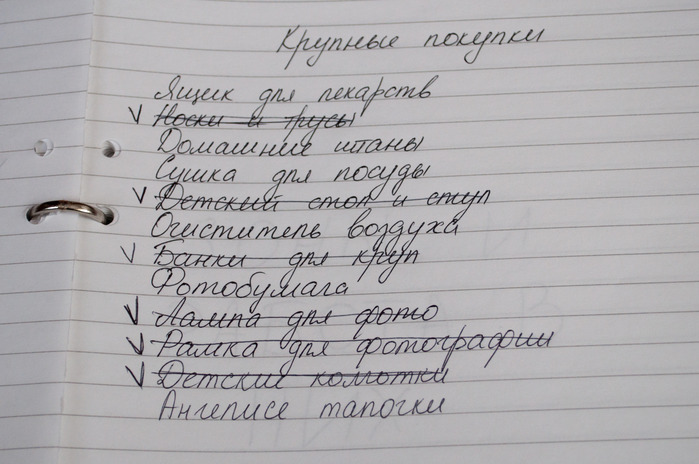 Крупные покупки
Ящик для лекарств
V Носки и трусы
Домашние штаны
Сушка для посуды
V Детский стол и стул
Очиститель воздуха
V Банки для круп
Фотобумага
V Лампа для фото
V Рамка для фотографии
V Детские колготки
Ангелисе тапочки